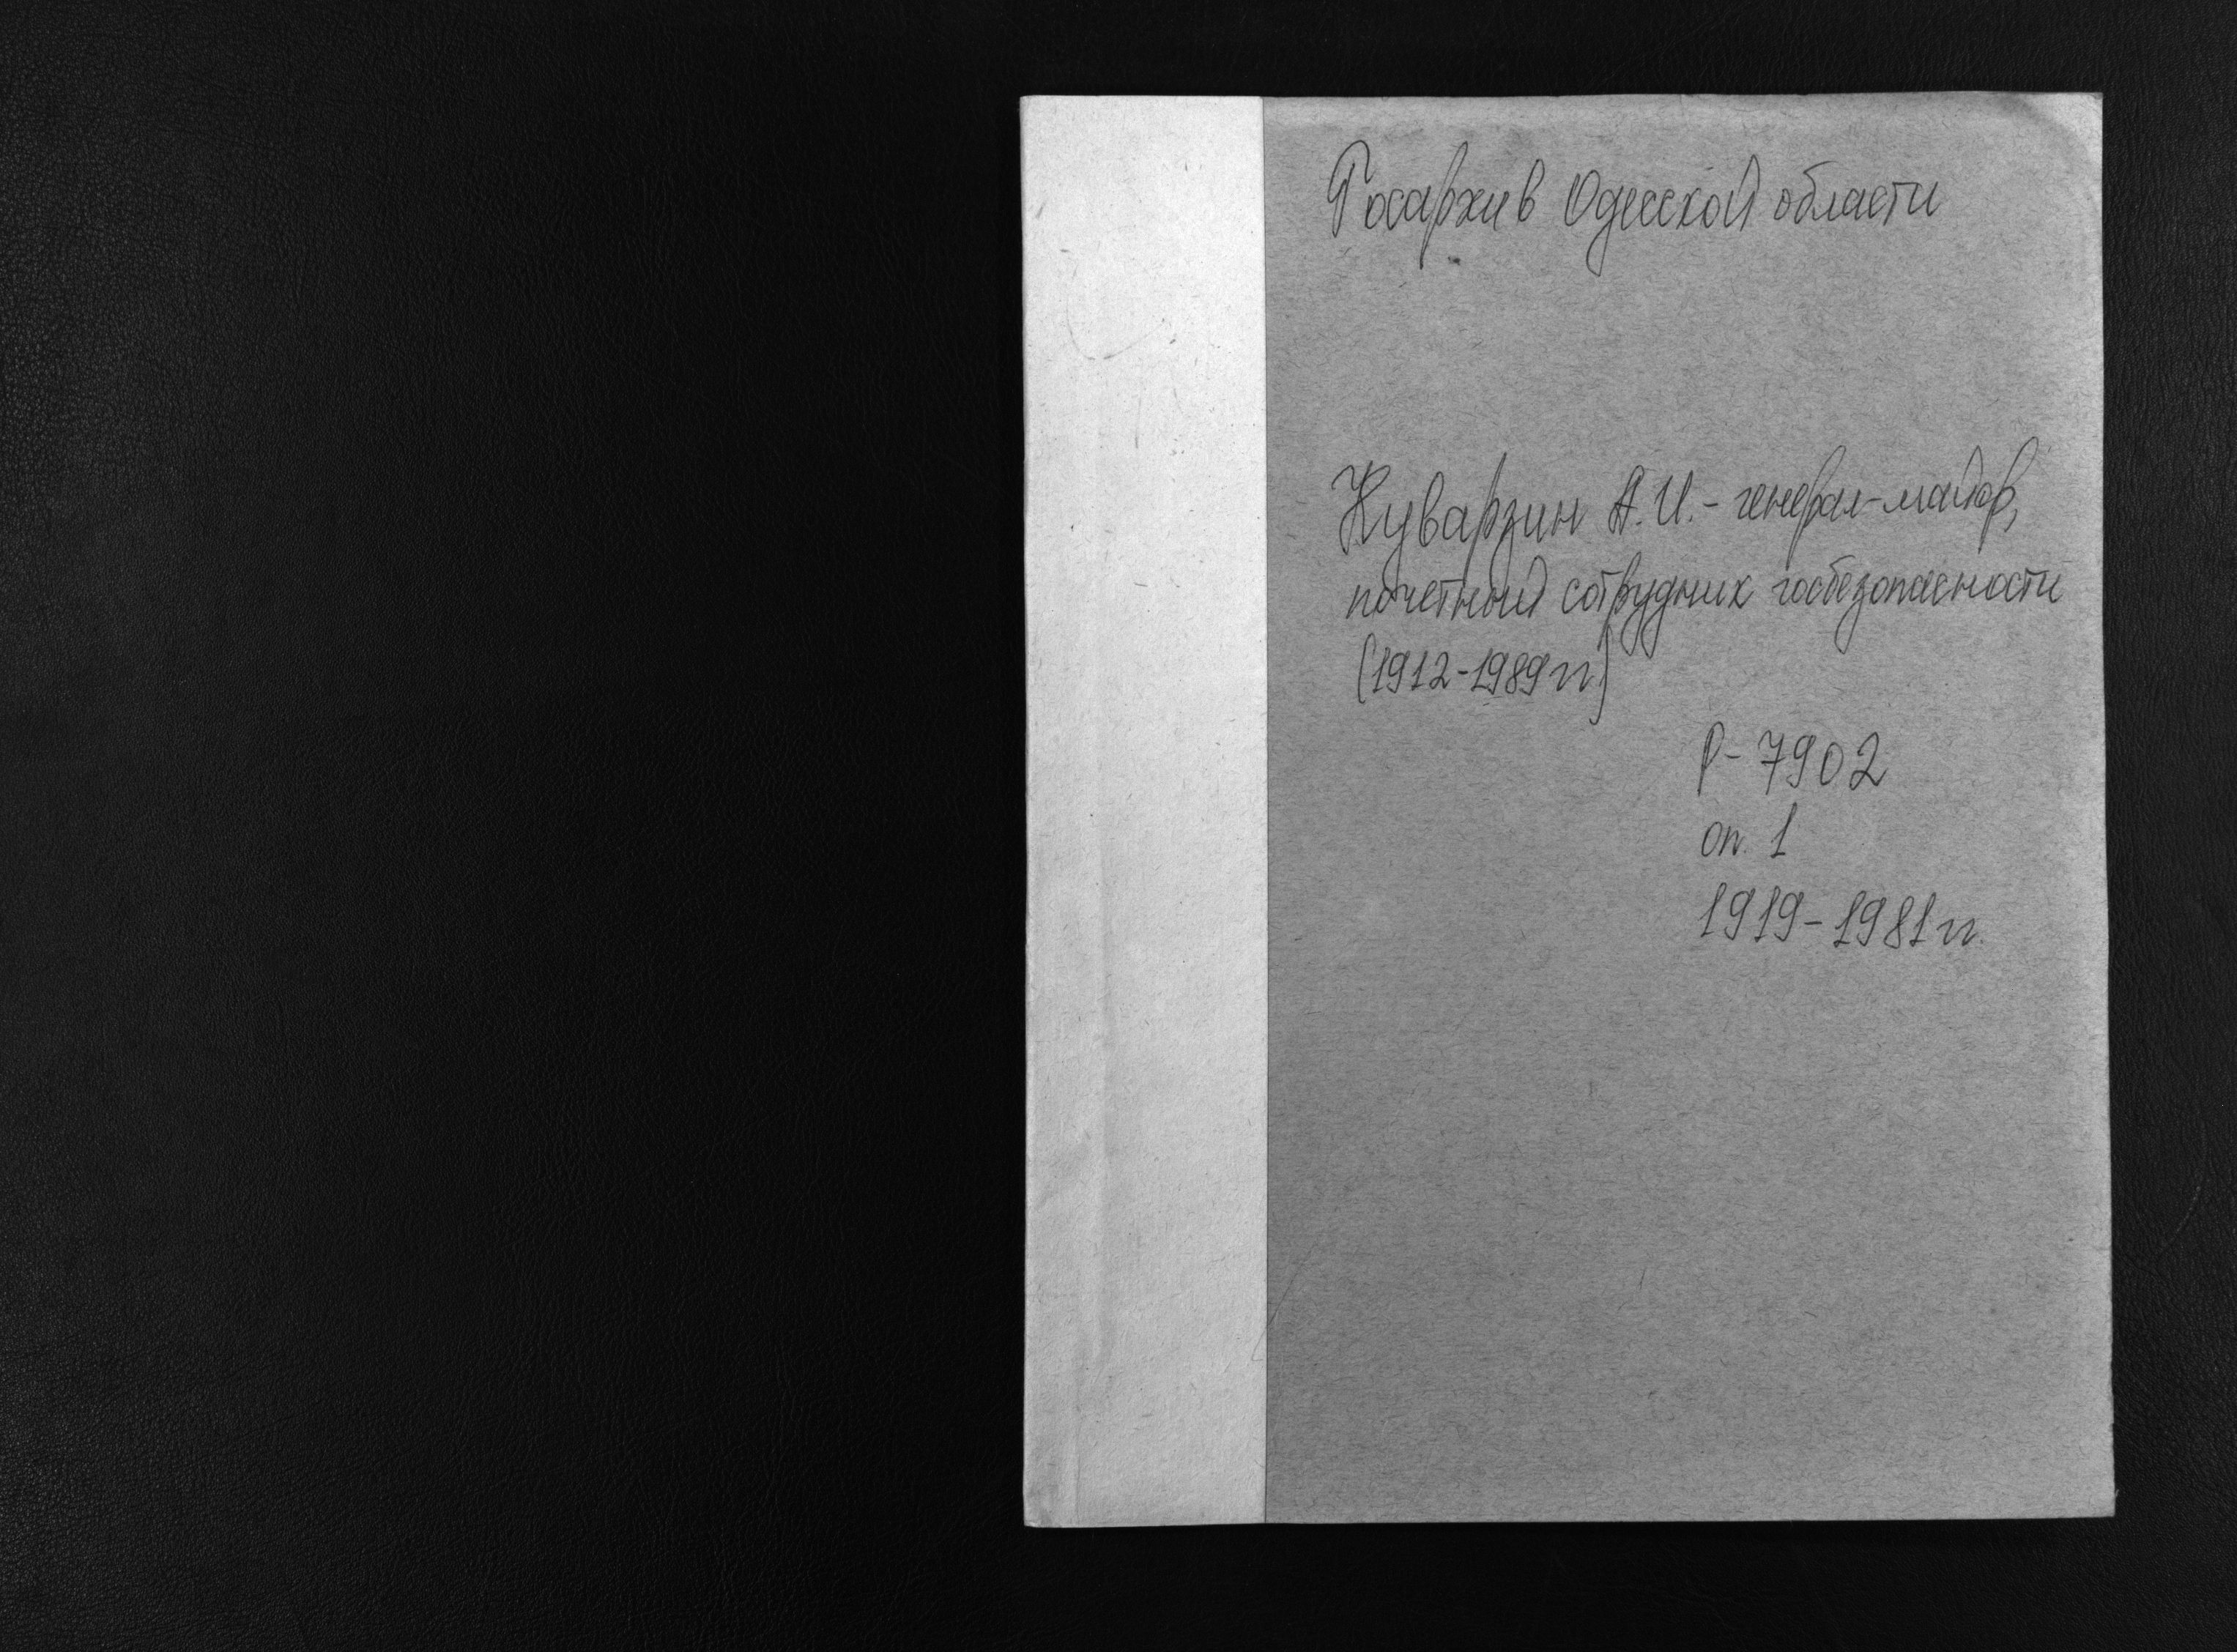 Госархив Одесской области
Куварзин А.И. - генерал-майор,
почетный сотрудник госбезопасности
(1912-1989 гг.)
Р-7902
оп. 1
1919-1981 гг.